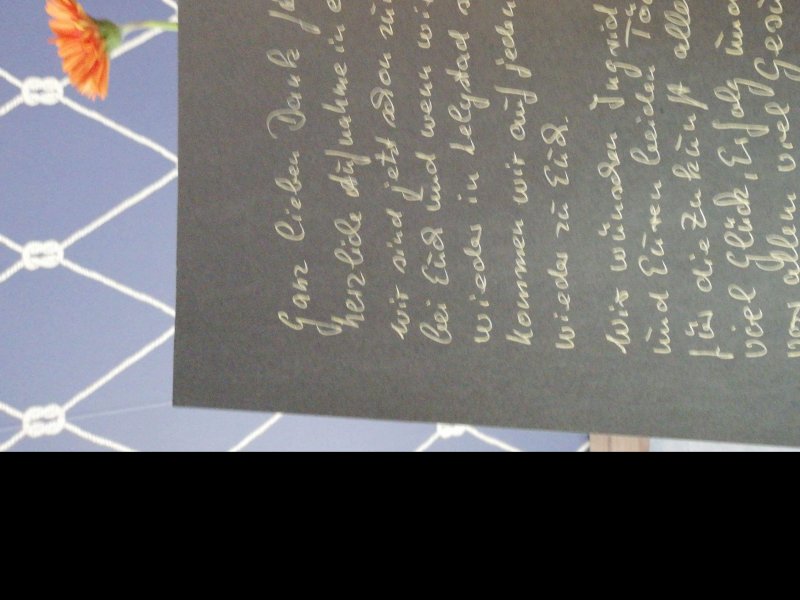 Ganz lieben Dank
herzliche Aufnahme in
wir sind jetzt schon
bei Euch und wenn wir
wieder in Lelystad
kommen wir auf jeden
wieder zu Euch.
Wir wünschen Ingrid
und Euren beiden
für die Zukunft alle
viel Glück, Erfolg und
vor allem viel